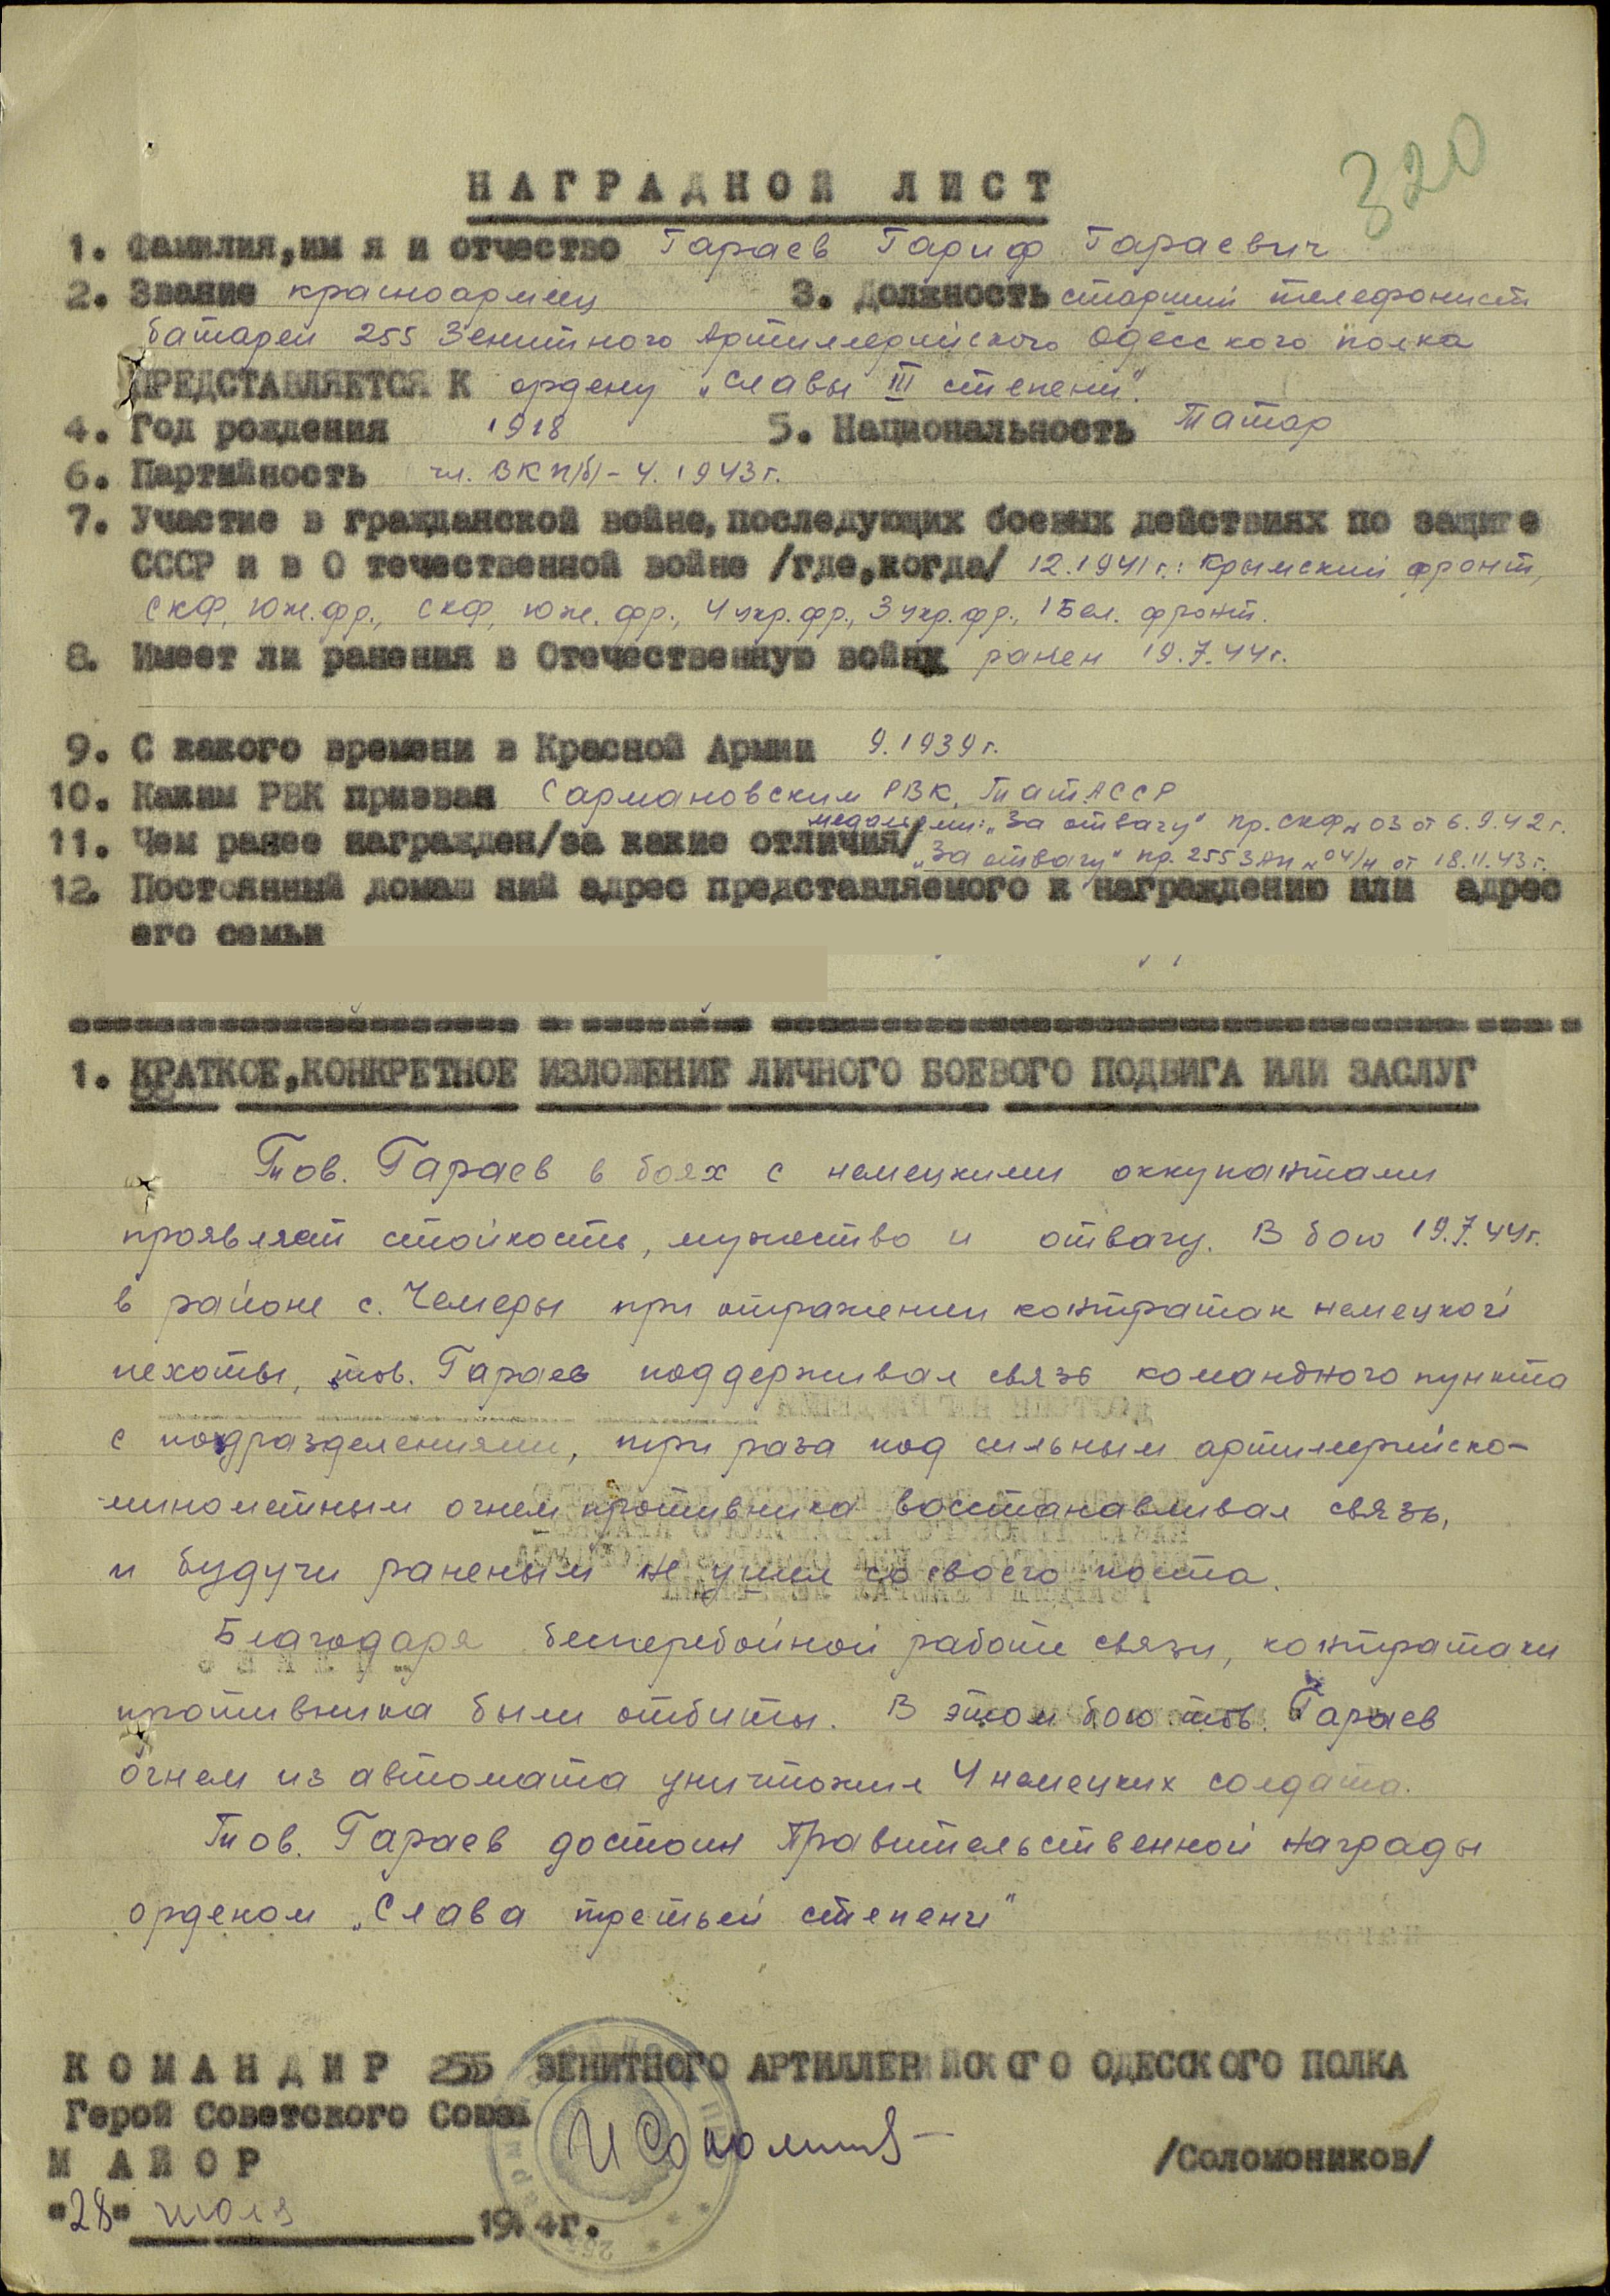 320
НАГРАДНОЙ ЛИСТ
1. Фамилия,им я и отчество Гараев Гариф Гараевич
2. Звание красноармеец 3. Должность старший телефонист
батареи 255 Зенитного Артиллерийского Одесского полка
ПРЕДСТАВЛЯЕТСЯ К ордену „Славы III степени".
4. Год рождения 1918 5. Национальность Татар
6. Партийность чл. ВКП/б/ - 4.1943г.
7. Участие в гражданской войне,последующих боевых действиях по защите
СССР и в О течественной войне /где,когда/ 12.1941г.: Крымский фронт,
СКФ, Юж.фр., СКФ, Юж. фр., 4 укр.фр., 3 укр.фр., 1 Бел. фронт.
8. Имеет ли ранения в Отечественную войну ранен 19.7.44г.
9. С какого времени в Красной Армии 9.1939г.
10. Каким РВК призван Сармановским РВК, ТатАССР
медалями: „За отвагу" пр. СКФ № 03 от 6.9.42г.
11. Чем ранее награжден/за какие отличия/ „За отвагу" пр. 255 ЗАП № 04/н от 18.11.43г.
12. Постоянный домаш ний адрес представляемого к награждению или адрес
его семьи
1. КРАТКОЕ,КОНКРЕТНОЕ ИЗЛОЖЕНИЕ ЛИЧНОГО БОЕВОГО ПОДВИГА ИЛИ ЗАСЛУГ
Тов. Гараев в боях с немецкими оккупантами
проявляет стойкость, мужество и отвагу. В бою 19.7.44г.
в районе с. Чемеры при отражении контратак немецкой
пехоты, тов. Гараев поддерживал связь командного пункта
с подразделениями, три раза под сильным артиллерийско-
минометным огнем противника восстанавливал связь,
и будучи раненым не ушел со своего поста.
Благодаря бесперебойной работе связи, контратаки
противника были отбиты. В этом бою тов. Гараев
огнем из автомата уничтожил 4 немецких солдата.
Тов. Гараев достоин Правительственной награды
орденом „Слава третьей степени"
КОМАНДИР 255 ЗЕНИТНОГО АРТИЛЛЕРИЙСКОГО ОДЕССКОГО ПОЛКА
Герой Советского Союза
МАЙОР /Соломоников/
"28" июля 1944г.